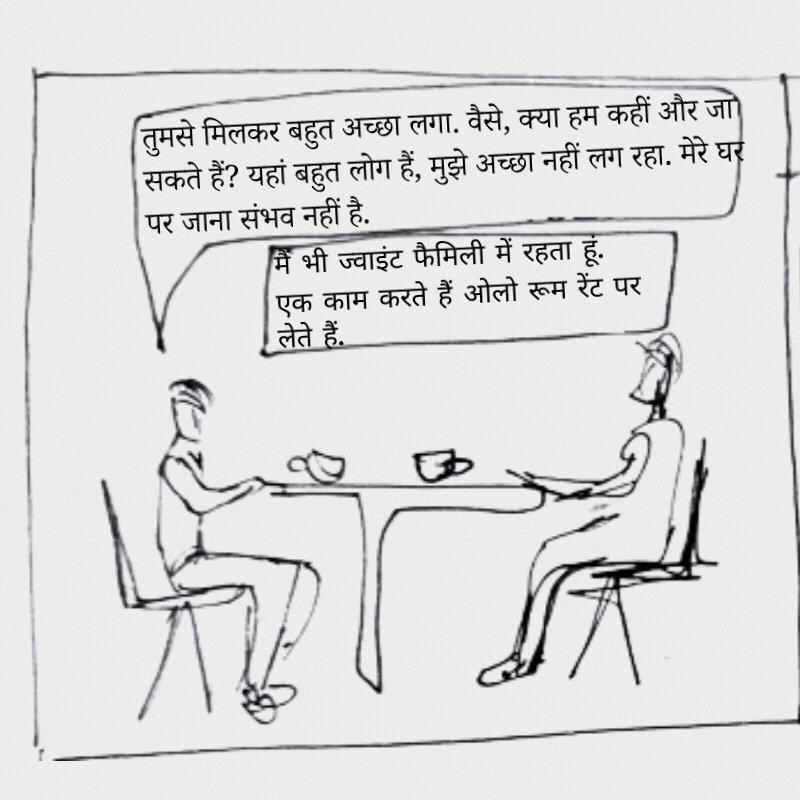 तुमसे मिलकर बहुत अच्छा लगा. वैसे, क्या हम कहीं और जा
सकते हैं? यहां बहुत लोग हैं, मुझे अच्छा नहीं लग रहा. मेरे घर
पर जाना संभव नहीं है.
मैं भी ज्वाइंट फैमिली में रहता हूं.
एक काम करते हैं ओलो रूम रेंट पर
लेते हैं.